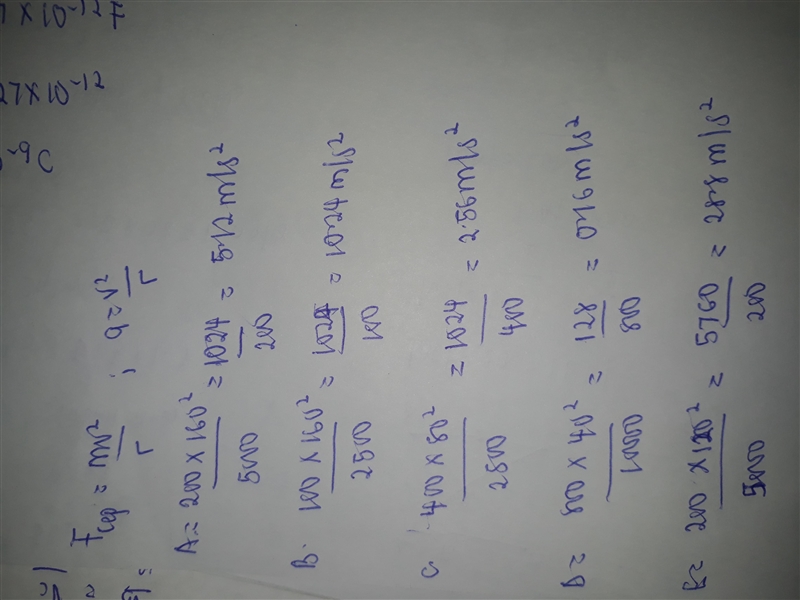 F_cep = mv²/r ; a = v²/r
A = 200 × 160²/5000 = 1024/200 = 5.12 m/s²
B. 100 × 160²/2500 = 1024/100 = 10.24 m/s²
C 400 × 80²/2500 = 1024/400 = 2.56 m/s²
D = 800 × 40²/10000 = 128/800 = 0.16 m/s²
E = 200 × 120²/5000 = 5760/200 = 28.8 m/s²